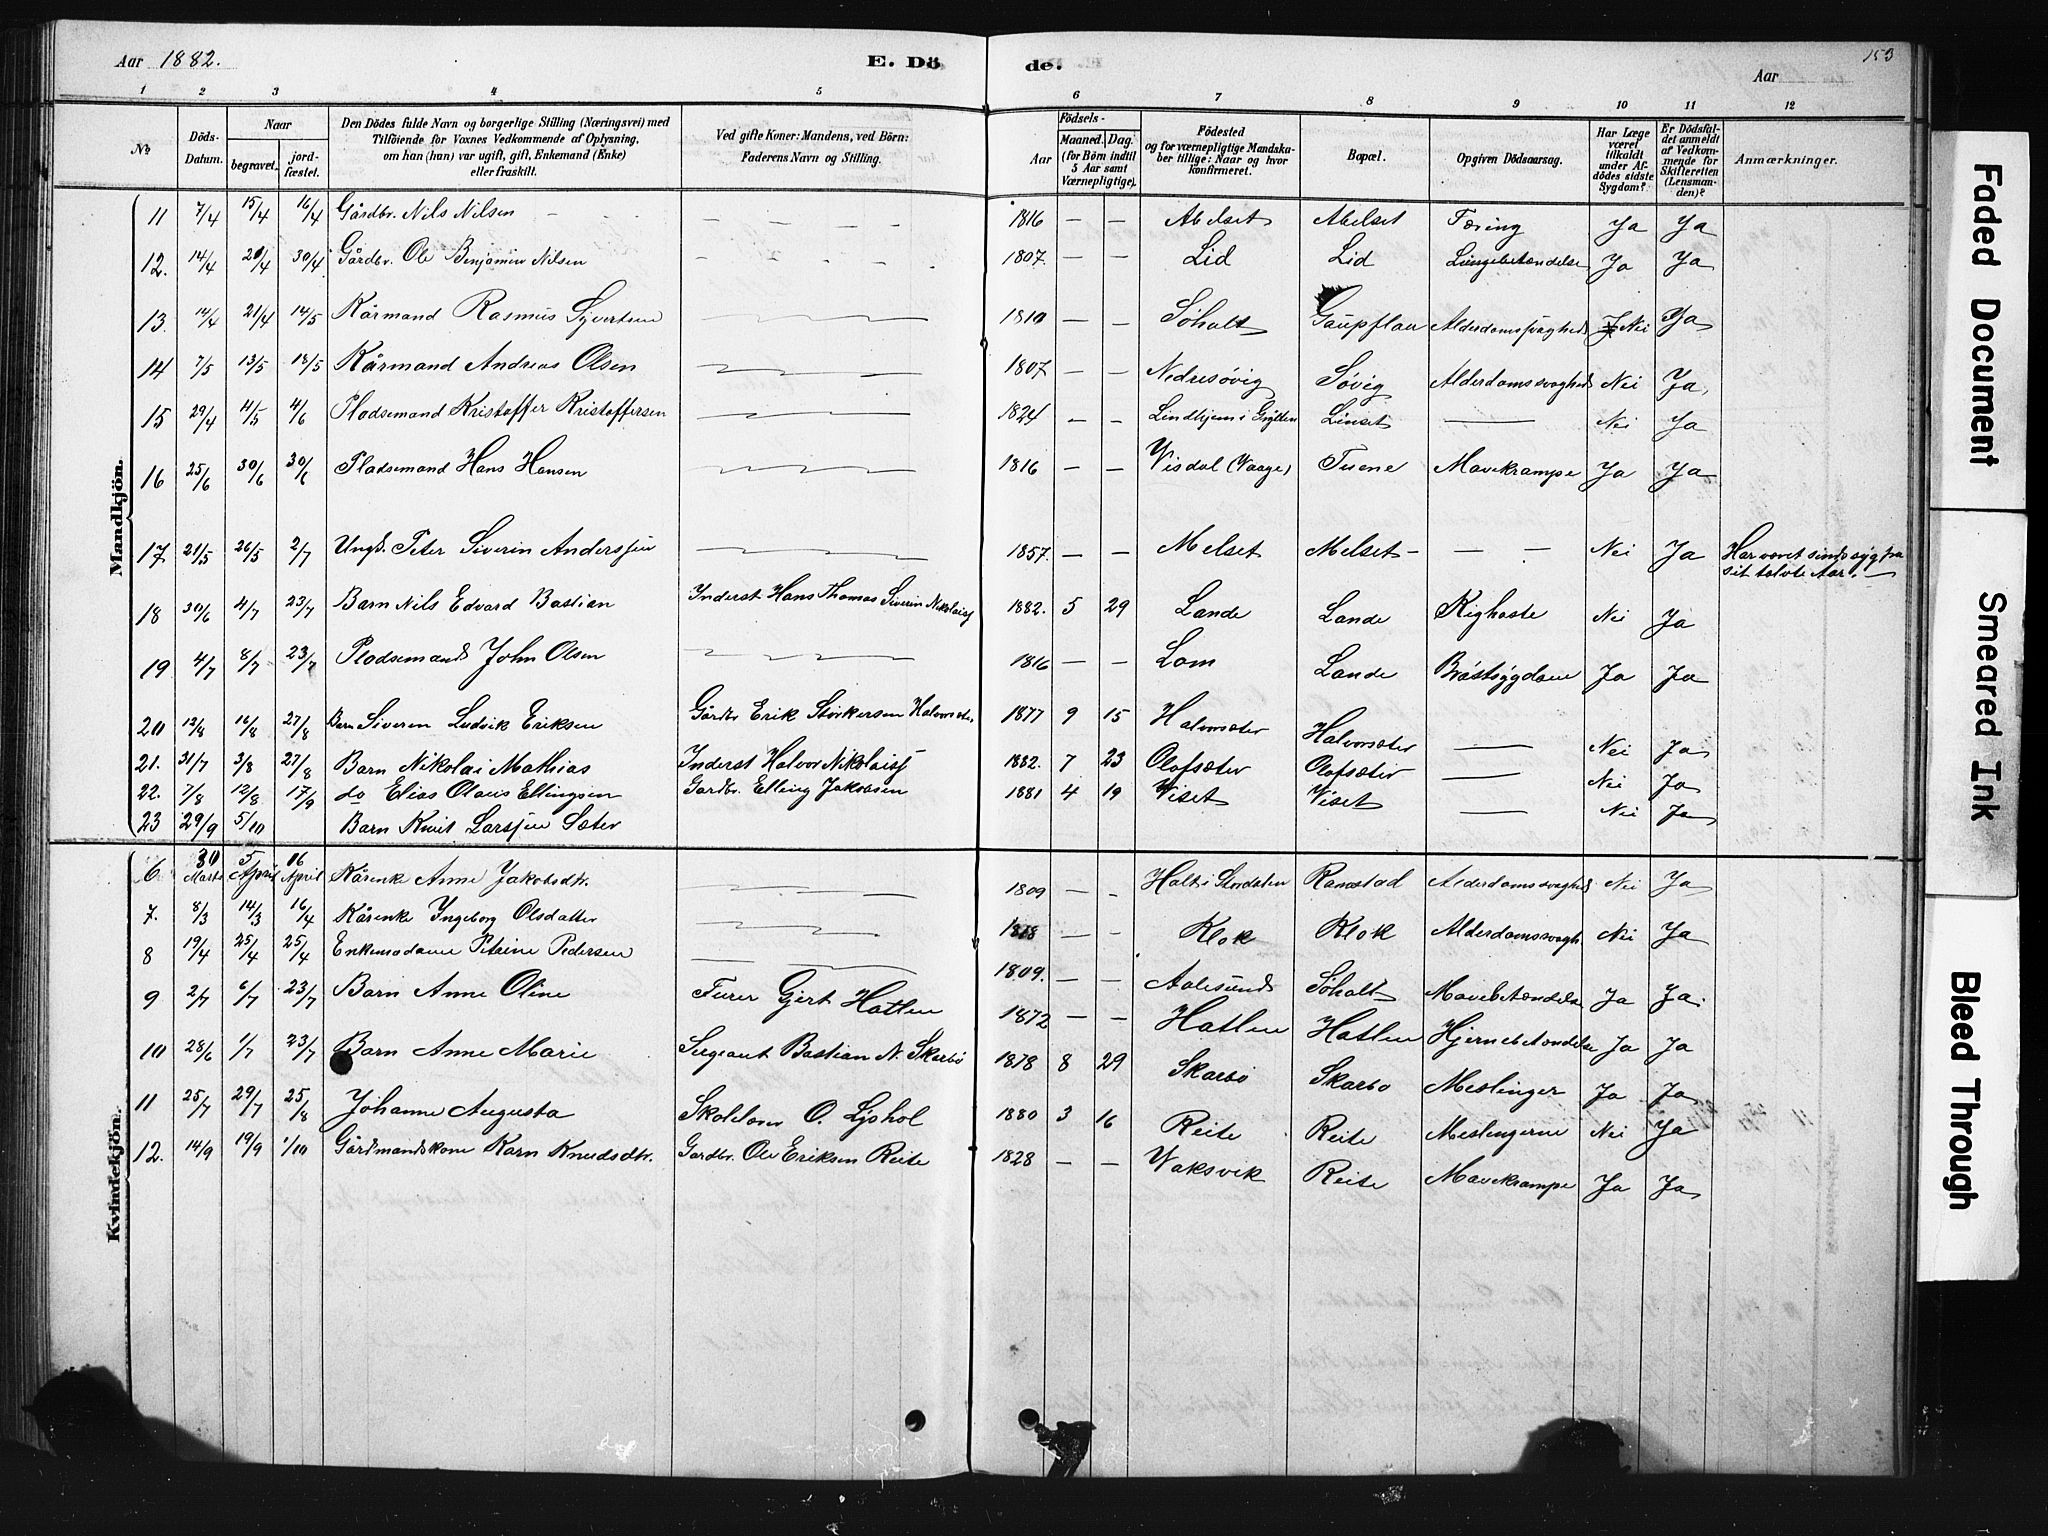 Aar 1882. E. Dö de. Aar 153
1 2 3 4 5 6 7 8 9 10 11 12
No. Döds-Datum. Naar begravet. jord-fæstet. Den Dödes fulde Navn og borgerlige Stilling (Næringsvei) med Tilföiende for Voxnes Vedkommende af Oplysning, om han (hun) var ugift, gift, Enkemand (Enke) eller fraskilt. Ved gifte Koner: Mandens, ved Börn: Faderens Navn og Stilling. Födsels- Aar Maaned. Dag. (for Börn indtil 5 Aar samt Værnepligtige). Födested og for værnepligtige Mandskaber tillige: Naar og hvor konfirmeret. Bopæl. Opgiven Dödsaarsag. Har Læge været tilkaldt under Afdödes sidste Sygdom? Er Dödsfaldet anmeldt af Vedkommende for Skifteretten (Lensmanden)? Anmærkninger.
Mandkjön.
11 7/4 15/4 16/4 Gårdbr. Nils Nilsen — — — — 1816 — — Abelset Abelset Tæring Ja Ja
12. 14/4 20/4 30/4 Gårdbr. Ole Benjamin Nilsen — — — — 1807. — — Lid Lid Lungebetændelse Ja Ja
13. 14/4 21/4 14/5 Kårmand Rasmus Syvertsen — — — 1810 — — Søholt Gaupflaa Alderdomssvaghed Nei Ja
14 7/5 13/5 18/5 Kårmand Andreas Olsen — — — 1807 — — Nedresøvig Søvig Alderdomssvaghed Nei Ja
15 29/4 4/5 4/6 Pladsemand Kristoffer Kristoffersen — — — 1824 — — Lindhjem i Grytten Linset — Nei Ja
16 25/6 30/6 30/6 Pladsemand Hans Hansen — — — 1816 — — Visdal (Vaage) Tuene Mavekrampe Ja Ja
17 21/5 26/5 2/7 Ungk. Peter Siverin Anderssen — — — 1857. — — Melset Melset — — — Nei Ja Har været sindssyg fra sit tolvte Aar. —
18 30/6 4/7 23/7 Barn Nils Edvard Bastian Inderst Hans Thomas Siverin Nikolaiss 1882. 5 29 Lande Lande Kighoste Nei Ja
19 4/7 8/7 23/7 Pladsemand John Olsen — — — 1816 — — Lom Lande Brøstsygdom Ja Ja
20 12/8 16/8 27/8 Barn Siveren Ludvik Eriksen Gårdbr Erik Størkersen Halvorsæter 1877 9 15 Halvorsæter Halvorsæter — Nei Ja
21. 31/7 3/8 27/8 Barn Nikolai Mathias Inderst Halvor Nikolaiss 1882. 7 23 Olofsæter Olofsæter — Nei Ja
22. 7/8 12/8 17/9 do Elias Olaus Ellingsen Gardbr. Elling Jakobsen 1881 4 19 Viset Viset — Nei Ja
23 29/9 5/10 Barn Knut Larssen Sæter
Kvindekjön.
6 30 Marts 5 April 16 April Kårenke Anne Jakobsdtr. — — — 1809 — — Holt i Stordalen Ramstad Alderdomssvaghed Nei Ja
7. 8/3 14/3 16/4 Kårenke Ingeborg Olsdatter — — — — — Klok Klok Alderdomssvagh Nei Ja
8 19/4 25/4 25/4 Enkemadame Petrine Pedersen — — — 1809. — — Aalesund Søholt Mavebetændelse Ja Ja.
9 2/7 6/7 23/7 Barn Anne Oline Furer Gjert Hatlen 1872 — — Hatlen Hatlen Hjernebetændelse Ja Ja
10 28/6 1/7 23/7 Barn Anne Marie Sergeant Bastian N. Skarbø 1878 8 29 Skarbø Skarbø Meslinger Ja Ja
11 25/7 29/7 25/8 Johanne Augusta Skolelærer O. Lyshol 1880 3 16 Reite Reite Meslingerne Nei Ja
12. 14/9 19/9 1/10 Gårdmandskone Karn Knudsdtr. Gardbr. Ole Eriksen Reite 1828 — — Vaksvik Reite Mavekrampe Ja Ja
Faded Document
Smeared Ink
Bleed Through